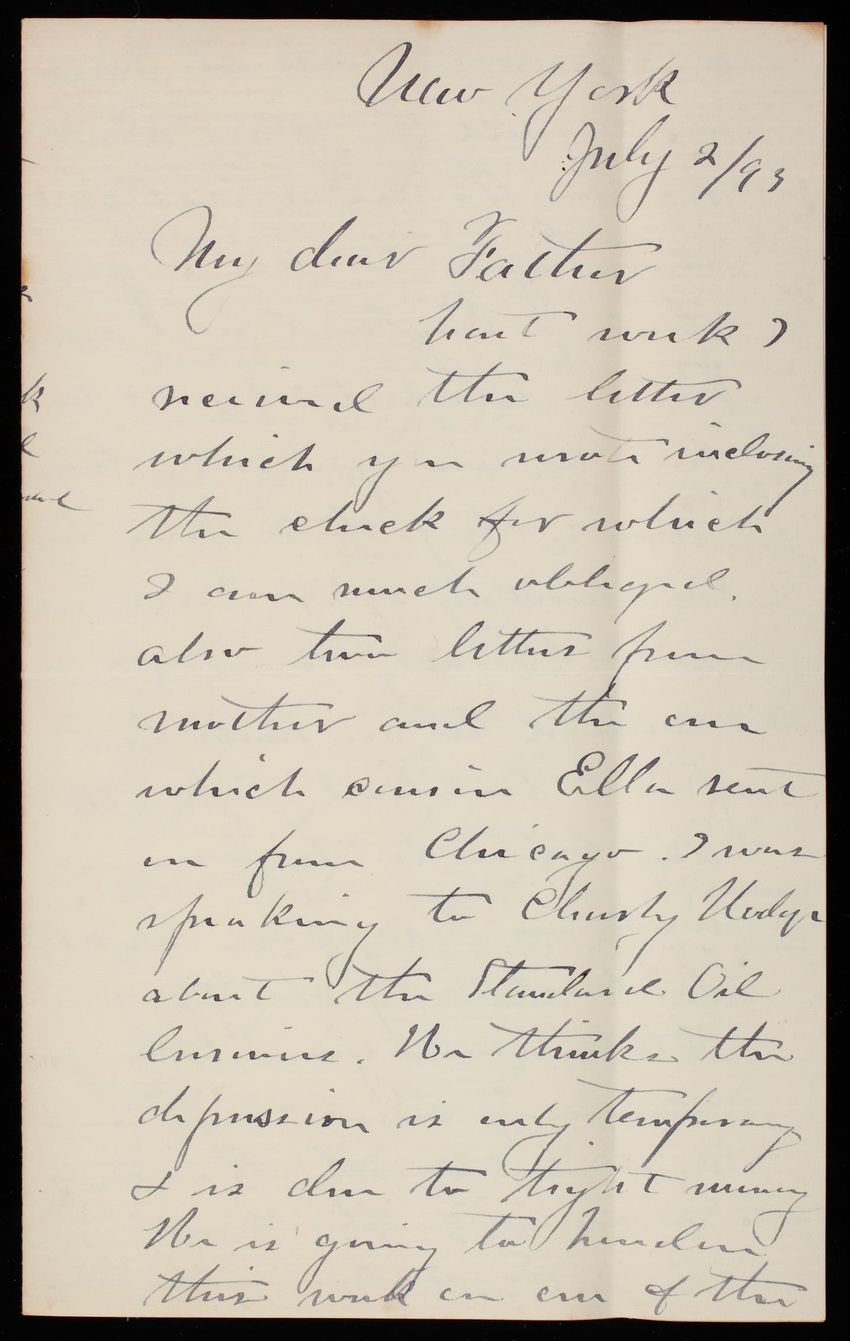 New York
July 2/93
My dear Father
Last week I
received the letter
which you wrote inclosing
the check for which
I am much obliged.
also two letters from
mother and the one
which cousin Ella sent
on from Chicago. I was
speaking to Charly Hedge
about the Standard Oil
business. He thinks the
depression is only temporary
& is due to tight money
He is going to London
this week on one of the